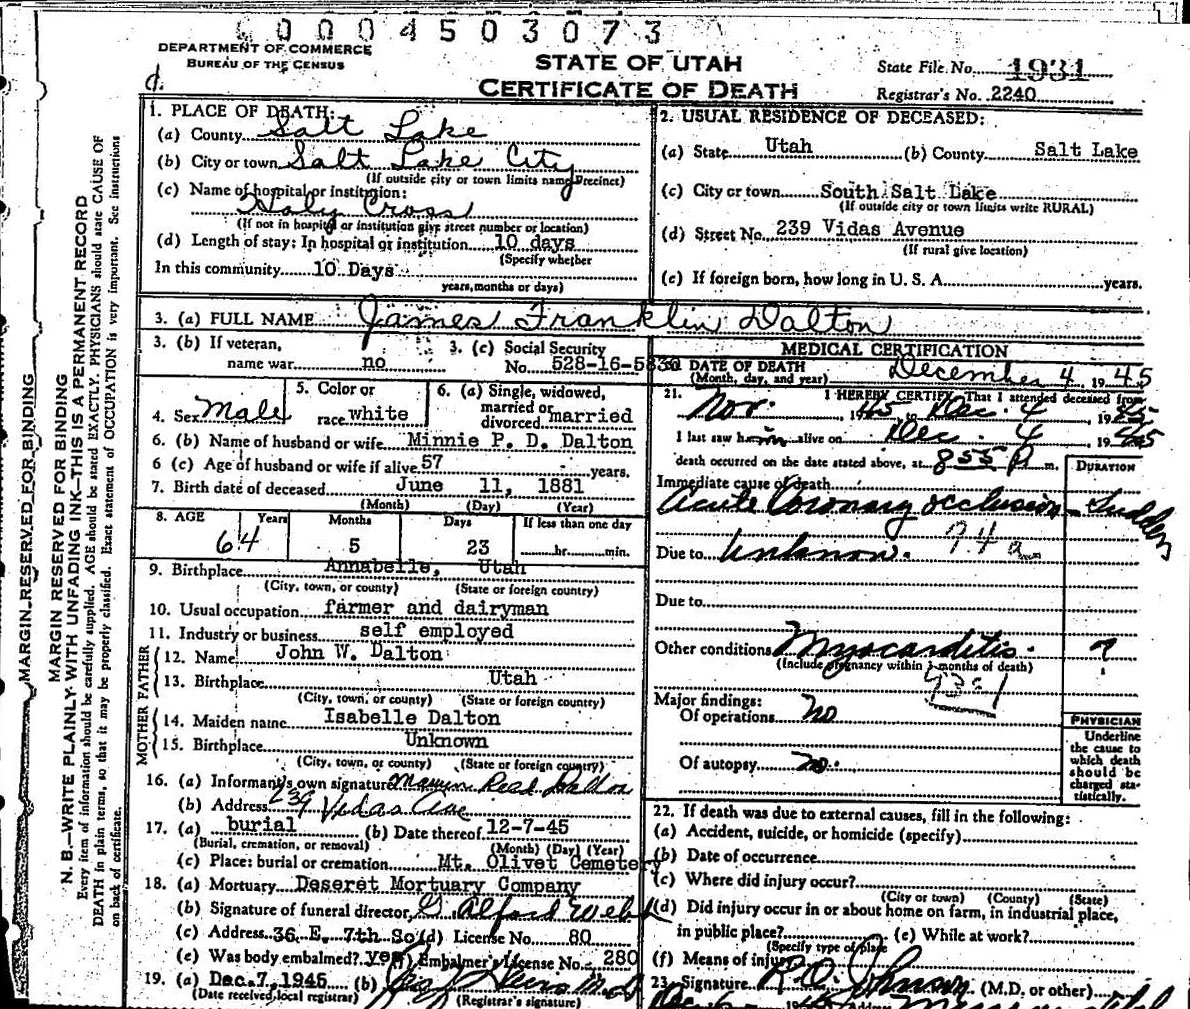 0004503073
DEPARTMENT OF COMMERCE
BUREAU OF THE CENSUS
STATE OF UTAH
CERTIFICATE OF DEATH
State File No. 1931
Registrar's No. 2240
d.
MARGIN RESERVED FOR BINDING
MARGIN RESERVED FOR BINDING
N. B.—WRITE PLAINLY WITH UNFADING INK—THIS IS A PERMANENT RECORD
Every item of information should be carefully supplied. AGE should be stated EXACTLY. PHYSICIANS should state CAUSE OF
DEATH in plain terms, so that it may be properly classified. Exact statement of OCCUPATION is very important. See instructions
on back of certificate.
1. PLACE OF DEATH:
(a) County Salt Lake
(b) City or town Salt Lake City
(If outside city or town limits name Precinct)
(c) Name of hospital or institution:
Holy Cross
(If not in hospital or institution give street number or location)
(d) Length of stay: In hospital or institution 10 days
(Specify whether
In this community 10 Days
years, months or days)
2. USUAL RESIDENCE OF DECEASED:
(a) State Utah (b) County Salt Lake
(c) City or town South Salt Lake
(If outside city or town limits write RURAL)
(d) Street No. 239 Vidas Avenue
(If rural give location)
(e) If foreign born, how long in U. S. A. years.
3. (a) FULL NAME James Franklin Dalton
3. (b) If veteran,
name war no
3. (c) Social Security
No. 528-16-5830
4. Sex Male
5. Color or
race white
6. (a) Single, widowed,
married or
divorced married
6. (b) Name of husband or wife Minnie P. D. Dalton
6 (c) Age of husband or wife if alive 57 years.
7. Birth date of deceased June 11, 1881
(Month) (Day) (Year)
8. AGE Years Months Days If less than one day
64 5 23 hr. min.
9. Birthplace Annabelle, Utah
(City, town, or county) (State or foreign country)
10. Usual occupation farmer and dairyman
11. Industry or business self employed
FATHER
12. Name John W. Dalton
13. Birthplace Utah
(City, town, or county) (State or foreign country)
MOTHER
14. Maiden name Isabelle Dalton
15. Birthplace Unknown
(City, town, or county) (State or foreign country)
16. (a) Informant's own signature Reed Dalton
(b) Address 239 Vidas Ave
17. (a) burial (b) Date thereof 12-7-45
(Burial, cremation, or removal) (Month) (Day) (Year)
(c) Place: burial or cremation Mt. Olivet Cemetery
18. (a) Mortuary Deseret Mortuary Company
(b) Signature of funeral director, Alford Webb
(c) Address 36 E. 7th So (d) License No. 80
(e) Was body embalmed? yes (f) Embalmer's License No. 280
19. (a) Dec. 7, 1945 (b)
(Date received local registrar) (Registrar's signature)
MEDICAL CERTIFICATION
20. DATE OF DEATH December 4, 1945
(Month, day, and year)
21. I HEREBY CERTIFY, That I attended deceased from
Nov. , 1945 to Dec. 4, 1945
I last saw him alive on Dec. 4, 1945
death occurred on the date stated above, at 855 P m.
DURATION
Immediate cause of death
Acute Coronary occlusion - Sudden
Due to Unknown. 94a
Due to
Other conditions Myocarditis. ?
(Include pregnancy within 3 months of death)
93d-1
Major findings:
Of operations no
Of autopsy no.
PHYSICIAN
Underline
the cause to
which death
should be
charged sta-
tistically.
22. If death was due to external causes, fill in the following:
(a) Accident, suicide, or homicide (specify)
(b) Date of occurrence
(c) Where did injury occur?
(City or town) (County) (State)
(d) Did injury occur in or about home on farm, in industrial place,
in public place? (e) While at work?
(Specify type of place
(f) Means of injury
23. Signature Johnson (M.D. or other)